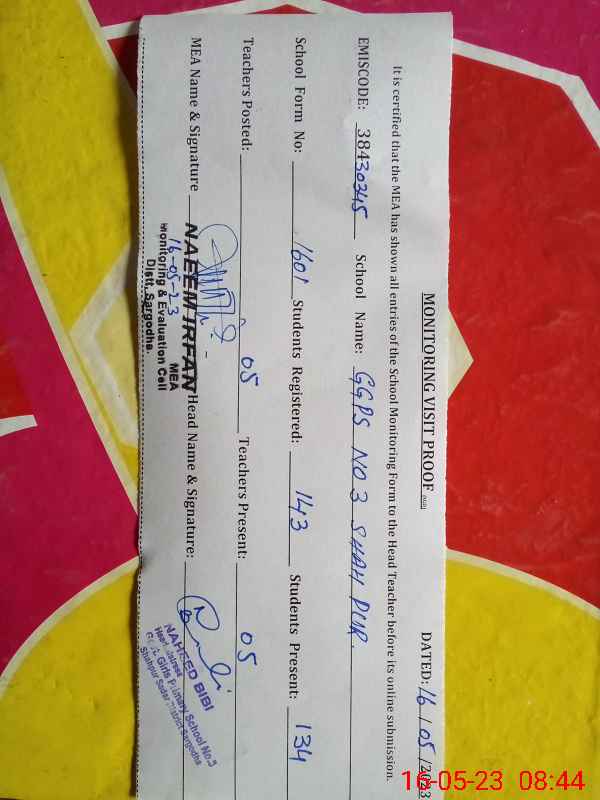 MONITORING VISIT PROOF
DATED: 16 / 05 /2023
It is certified that the MEA has shown all entries of the School Monitoring Form to the Head Teacher before its online submission.
EMISCODE: 38430345 School Name: GGPS NO 3 SHAH PUR.
School Form No: 1601 Students Registered: 143 Students Present: 134
Teachers Posted: 05 Teachers Present: 05
MEA Name & Signature Head Name & Signature:
NAEEM IRFAN
MEA
Monitoring & Evaluation Cell
16-05-23
Distt. Sargodha.
NAHEED BIBI
Girls Primary School No.3
Shahpur Sadar District Sargodha
16-05-23 08:44